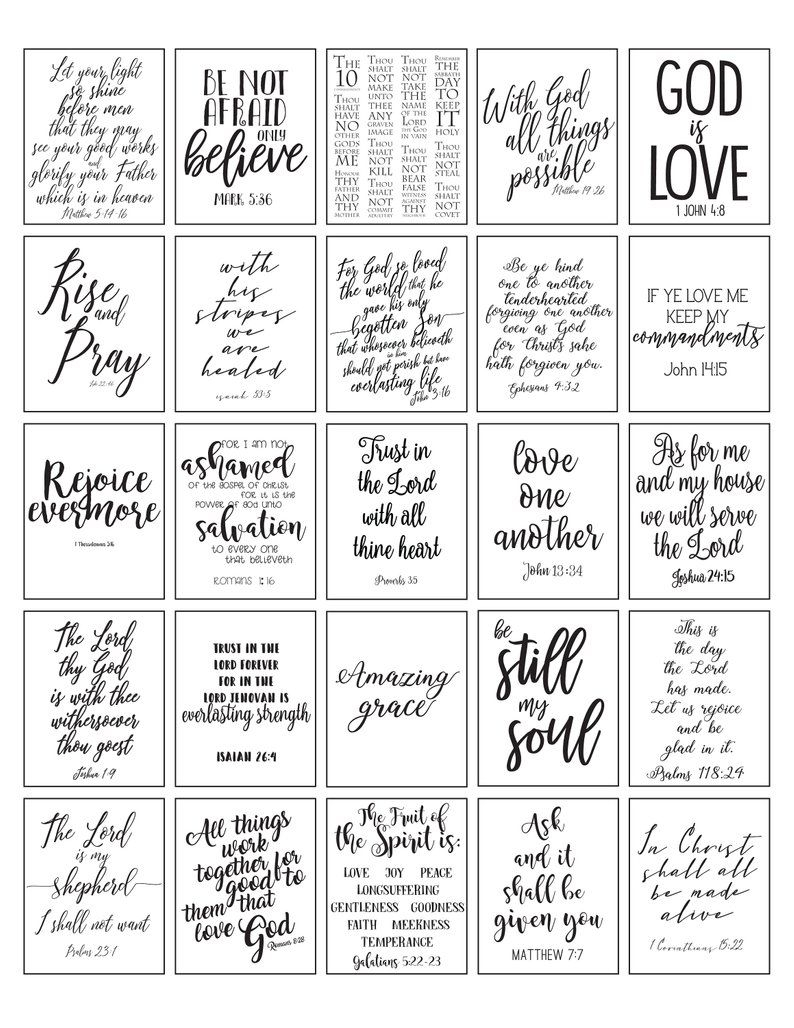 Let your light
so shine
before men
that they may
see your good works
and
glorify your Father
which is in heaven
Matthew 5:14-16
BE NOT
AFRAID
ONLY
believe
MARK 5:36
THE
10
COMMANDMENTS
THOU
SHALT
HAVE
NO
OTHER
GODS
BEFORE
ME
HONOUR
THY
FATHER
AND
THY
MOTHER
THOU
SHALT
NOT
MAKE
UNTO
THEE
ANY
GRAVEN
IMAGE
THOU
SHALT
NOT
KILL
THOU
SHALT
NOT
COMMIT
ADULTERY
THOU
SHALT
NOT
TAKE
THE
NAME
OF THE
LORD
THY GOD
IN VAIN
THOU
SHALT
NOT
BEAR
FALSE
WITNESS
AGAINST
THY
NEIGHBOUR
REMEMBER
THE
SABBATH
DAY
TO
KEEP
IT
HOLY
THOU
SHALT
NOT
STEAL
THOU
SHALT
NOT
COVET
With God
all things
are
possible
Matthew 19:26
GOD
is
LOVE
1 JOHN 4:8
Rise
and
Pray
with
his
stripes
we
are
healed
isaiah 53:5
For God so loved
the world that he
gave his only
begotten Son
that whosoever believeth
in him
should not perish but have
everlasting life
John 3:16
Be ye kind
one to another
tenderhearted
forgiving one another
even as God
for Christ's sake
hath forgiven you.
Ephesians 4:32
IF YE LOVE ME
KEEP MY
commandments
John 14:15
Rejoice
evermore
1 Thessalonians 5:16
FOR I AM NOT
ashamed
OF THE GOSPEL OF CHRIST
FOR IT IS THE
POWER OF GOD UNTO
salvation
TO EVERY ONE
THAT BELIEVETH
ROMANS 1:16
Trust in
the Lord
with all
thine heart
Proverbs 3:5
love
one
another
John 13:34
As for me
and my house
we will serve
the Lord
Joshua 24:15
The Lord
thy God
is with thee
withersoever
thou goest
Joshua 1:9
TRUST IN THE
LORD FOREVER
FOR IN THE
LORD JEHOVAH IS
everlasting strength
ISAIAH 26:4
Amazing
grace
be
still
my
soul
This is
the day
the Lord
has made.
Let us rejoice
and be
glad in it.
Psalms 118:24
The Lord
is my
shepherd
I shall not want
Psalms 23:1
All things
work
together for
good to
them that
love God
Romans 8:28
The Fruit of
the Spirit is:
LOVE JOY PEACE
LONGSUFFERING
GENTLENESS GOODNESS
FAITH MEEKNESS
TEMPERANCE
Galatians 5:22-23
Ask
and it
shall be
given you
MATTHEW 7:7
In Christ
shall all
be made
alive
1 Corinthians 15:22